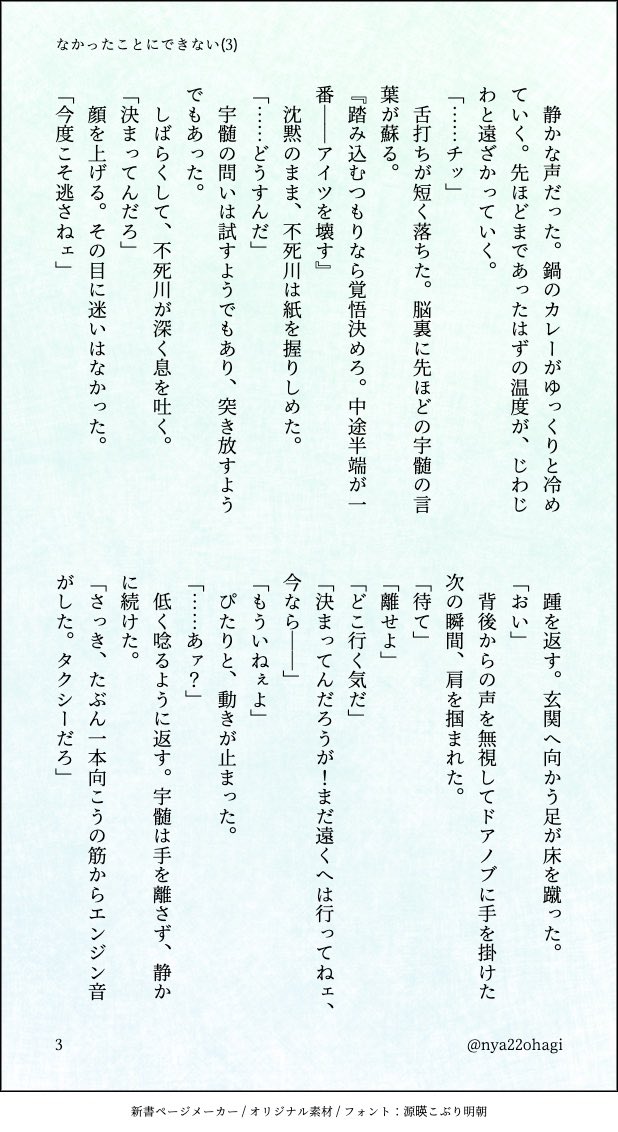 なかったことにできない(3)
　静かな声だった。鍋のカレーがゆっくりと冷め
ていく。先ほどまであったはずの温度が、じわじ
わと遠ざかっていく。
「……チッ」
　舌打ちが短く落ちた。脳裏に先ほどの宇髄の言
葉が蘇る。
『踏み込むつもりなら覚悟決めろ。中途半端が一
番――アイツを壊す』
　沈黙のまま、不死川は紙を握りしめた。
「……どうすんだ」
　宇髄の問いは試すようでもあり、突き放すよう
でもあった。
　しばらくして、不死川が深く息を吐く。
「決まってんだろ」
　顔を上げる。その目に迷いはなかった。
「今度こそ逃さねェ」
　踵を返す。玄関へ向かう足が床を蹴った。
「おい」
　背後からの声を無視してドアノブに手を掛けた
次の瞬間、肩を掴まれた。
「待て」
「離せよ」
「どこ行く気だ」
「決まってんだろうが！まだ遠くへは行ってねェ、
今なら――」
「もういねぇよ」
　ぴたりと、動きが止まった。
「……あァ？」
　低く唸るように返す。宇髄は手を離さず、静か
に続けた。
「さっき、たぶん一本向こうの筋からエンジン音
がした。タクシーだろ」
3
@nya22ohagi
新書ページメーカー / オリジナル素材 / フォント：源暎こぶり明朝